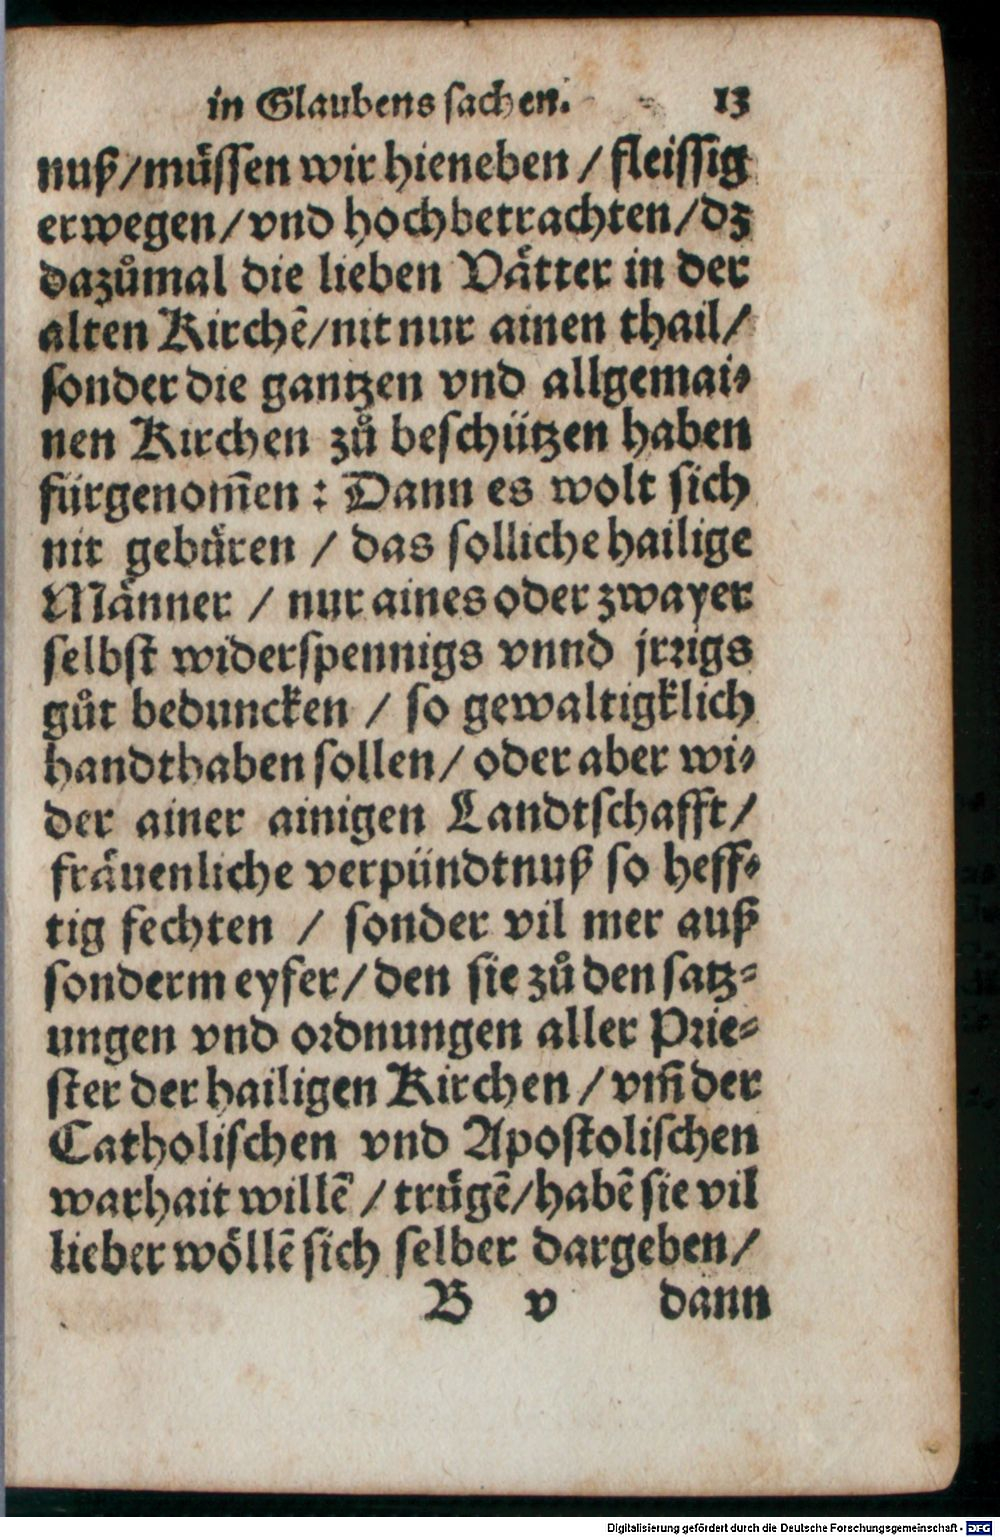 in Glaubens sachen. 13
nuß/müssen wir hieneben / fleissig
erwegen/vnd hochbetrachten/dz
dazůmal die lieben Vätter in der
alten Kirchē/nit nur ainen thail/
sonder die gantzen vnd allgemai⸗
nen Kirchen zů beschützen haben
fürgenom̄en : Dann es wolt sich
nit gebüren / das solliche hailige
Männer / nur aines oder zwayer
selbst widerspennigs vnnd jrrigs
gůt beduncken / so gewaltigklich
handthaben sollen/ oder aber wi⸗
der ainer ainigen Landtschafft/
fräuenliche verpündtnuß so heff⸗
tig fechten / sonder vil mer auß
sonderm eyfer/den sie zů den satz⸗
ungen vnd ordnungen aller Prie⸗
ster der hailigen Kirchen / vm̄ der
Catholischen vnd Apostolischen
warhait willē / trügē/habē sie vil
lieber wöllē sich selber dargeben/
B v dann
Digitalisierung gefördert durch die Deutsche Forschungsgemeinschaft - DFG